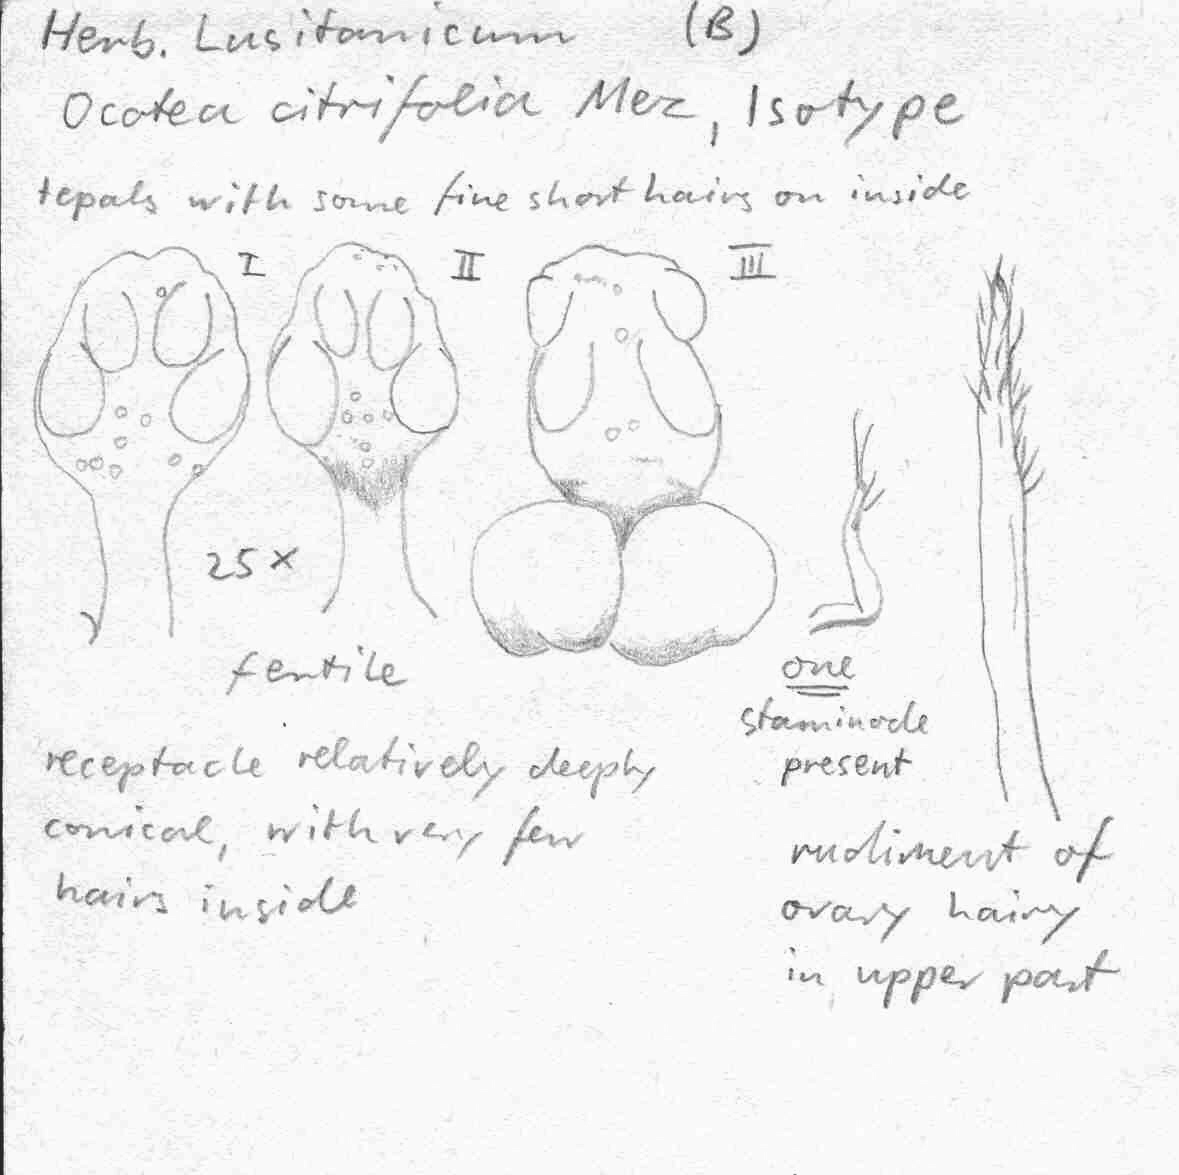 Herb. Lusitanicum (B)
Ocotea citrifolia Mez, Isotype
tepals with some fine short hairs on inside
I II III
25 x
fertile
one
staminode
present
receptacle relatively deeply
conical, with very few
hairs inside
rudiment of
ovary hairy
in upper part